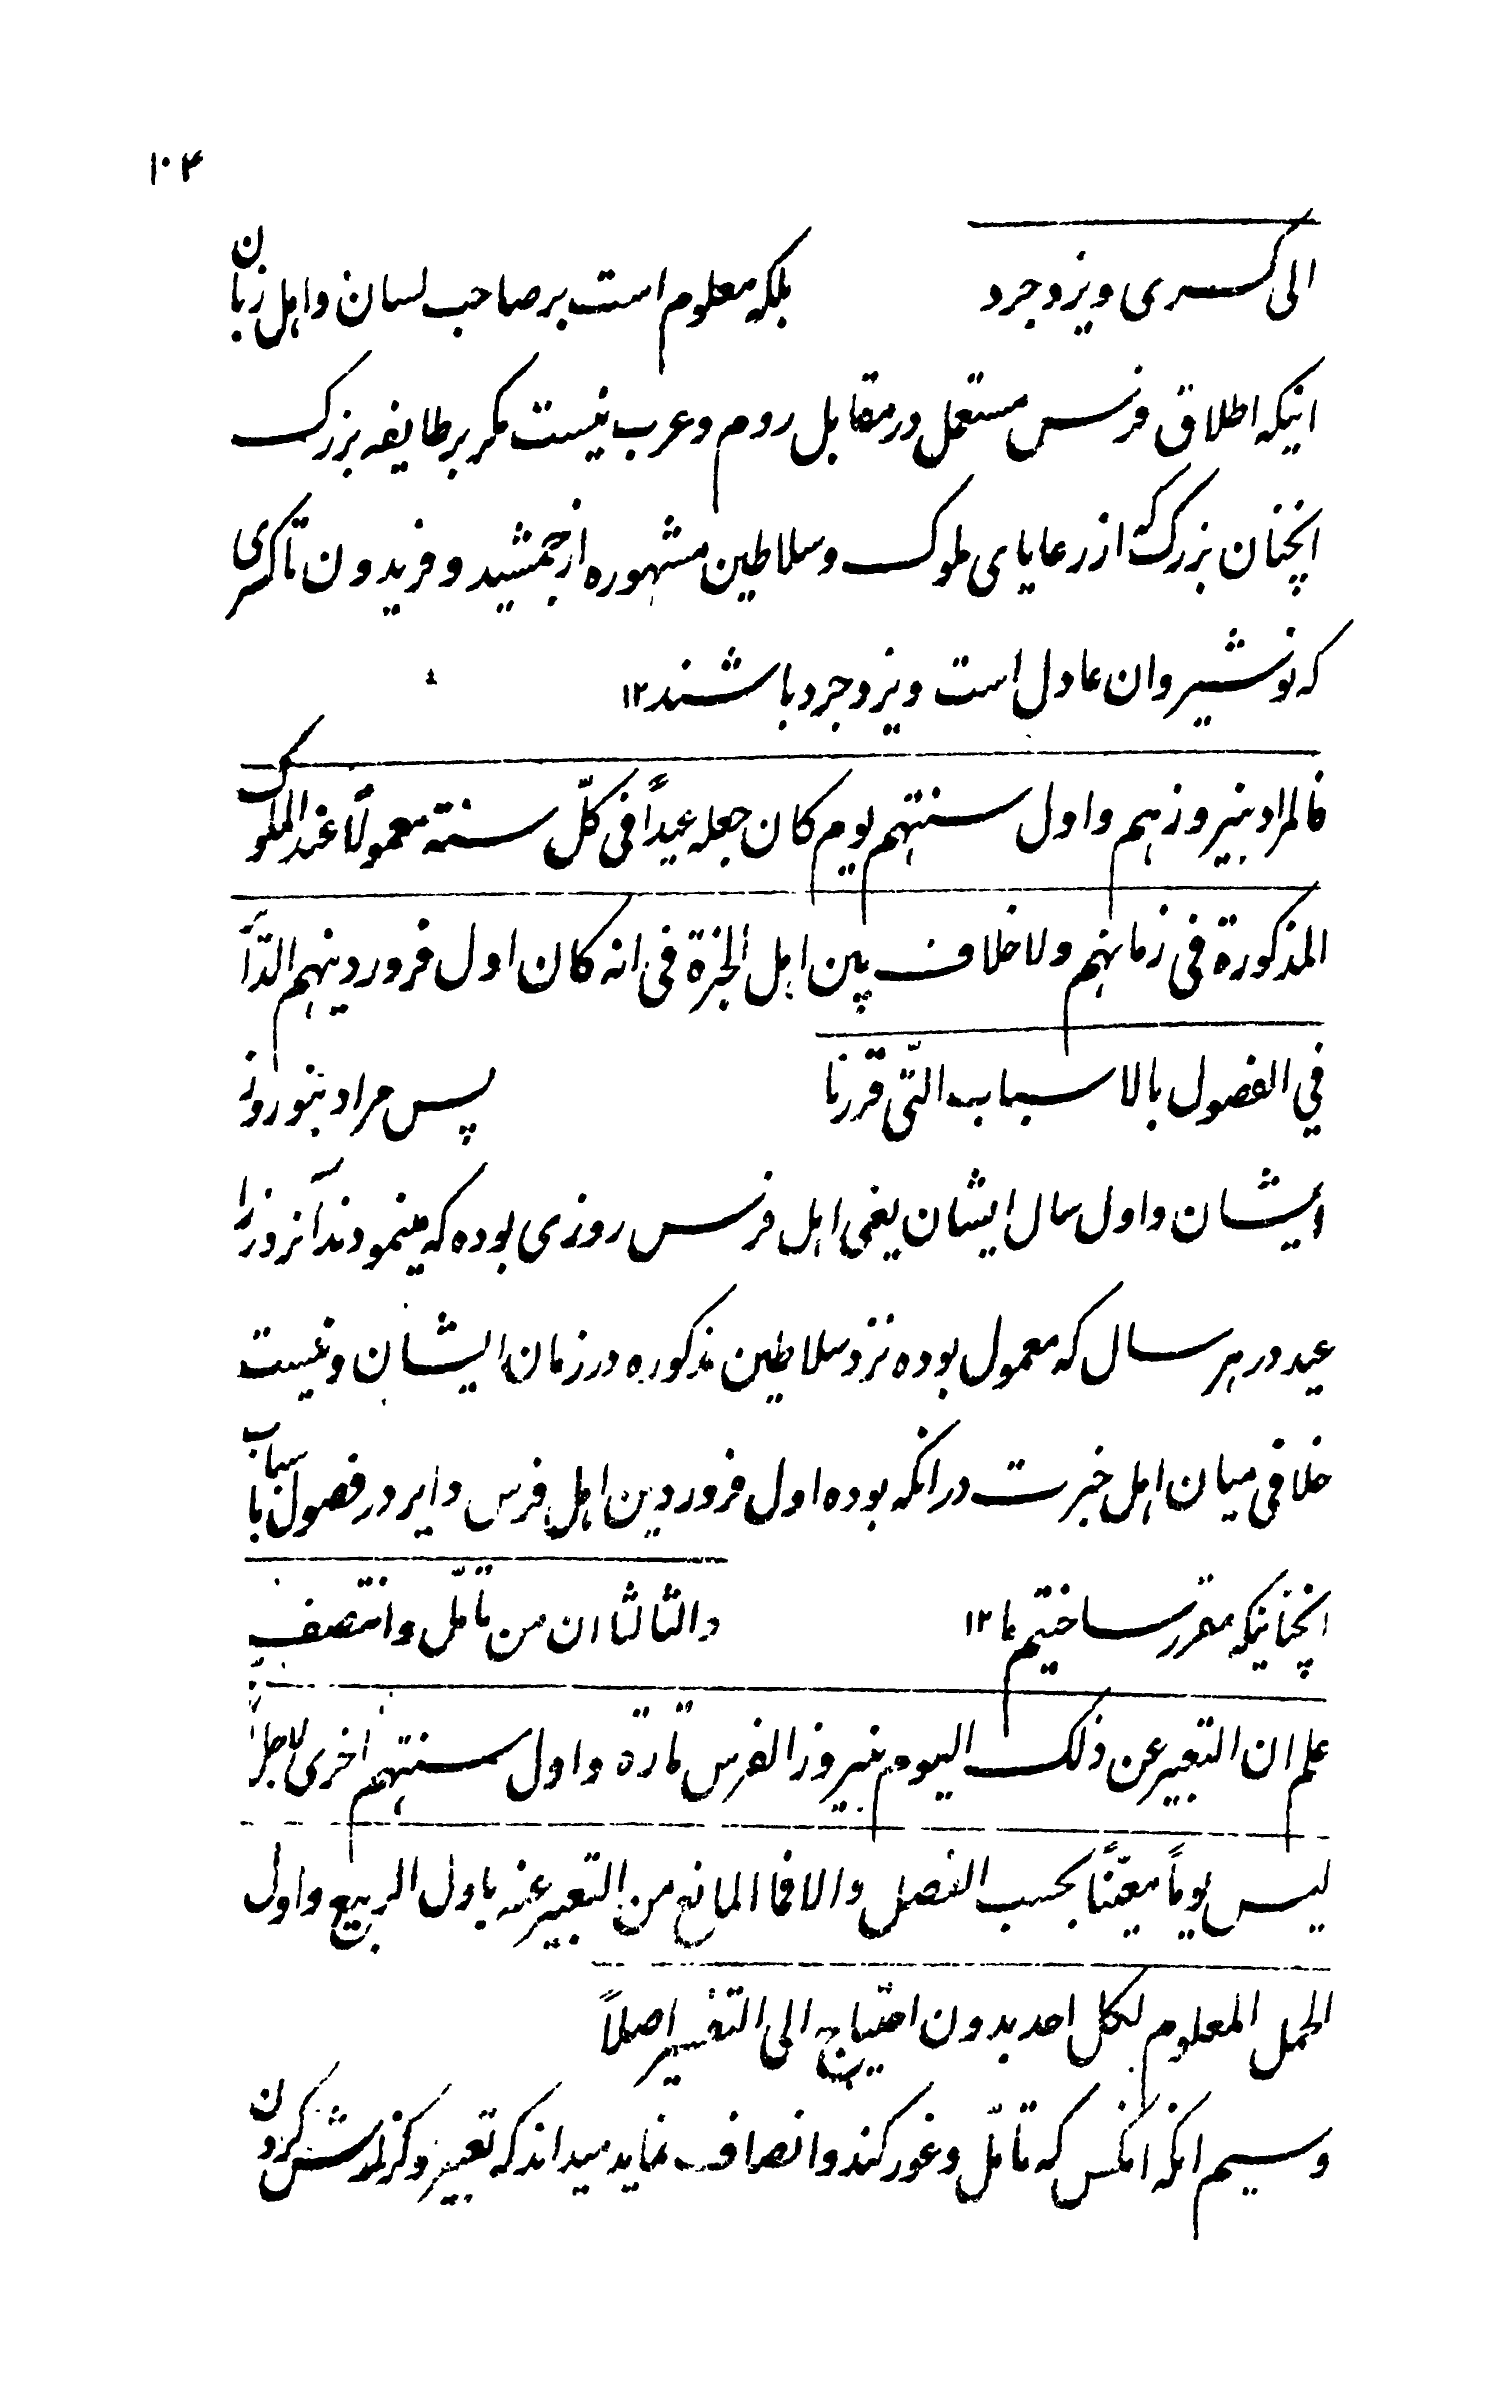 ۱۰۴
الی کسری و یزدجرد بلکه معلوم است بر صاحب لسان و اهل زبان
اینکه اطلاق فرس مستعمل در مقابل روم و عرب نیست مگر بر طایفه بزرگ
انچنان بزرگ که از رعایای ملوک و سلاطین مشهوره از جمشید و فریدون تا کسری
که نوشیروان عادل است و یزدجرد باشند ۱۲
فالمراد بنیروزهم و اول سنتهم یوم کان جعله عیداً فی کلّ سنة معمولاً عند الملوک
المذکورة فی زمانهم ولا خلاف بین اهل الخبرة فی انه کان اول فروردینهم الدّائر
في الفصول بالاسباب التّی قررنا پس مراد بنوروز
ایشان و اول سال ایشان یعنی اهل فرس روزی بوده که مینمودند آنروز را
عید در هر سال که معمول بوده نزد سلاطین مذکوره در زمان ایشان و نیست
خلافی میان اهل خبرت در انکه بوده اول فروردین اهل فرس دایر در فصول باسباب
انچنانیکه مقرر ساختیم ما ۱۲ و الثالثا ان من تامّل و انتصف
علم ان التعبیر عن ذلک الیوم بنیروز الفرس تارة و اول سنتهم اخری لاجل انّه
لیس یوماً معیّناً بحسب الفصل و الا فما المانع من التعبیر عنه باول الربیع و اول
الحمل المعلوم لکل احد بدون احتیاج الی التفسیر اصلاً
و سیم انکه انکس که تامّل و غور کند و انصاف نماید میداند که تعبیر و گزارش کردن